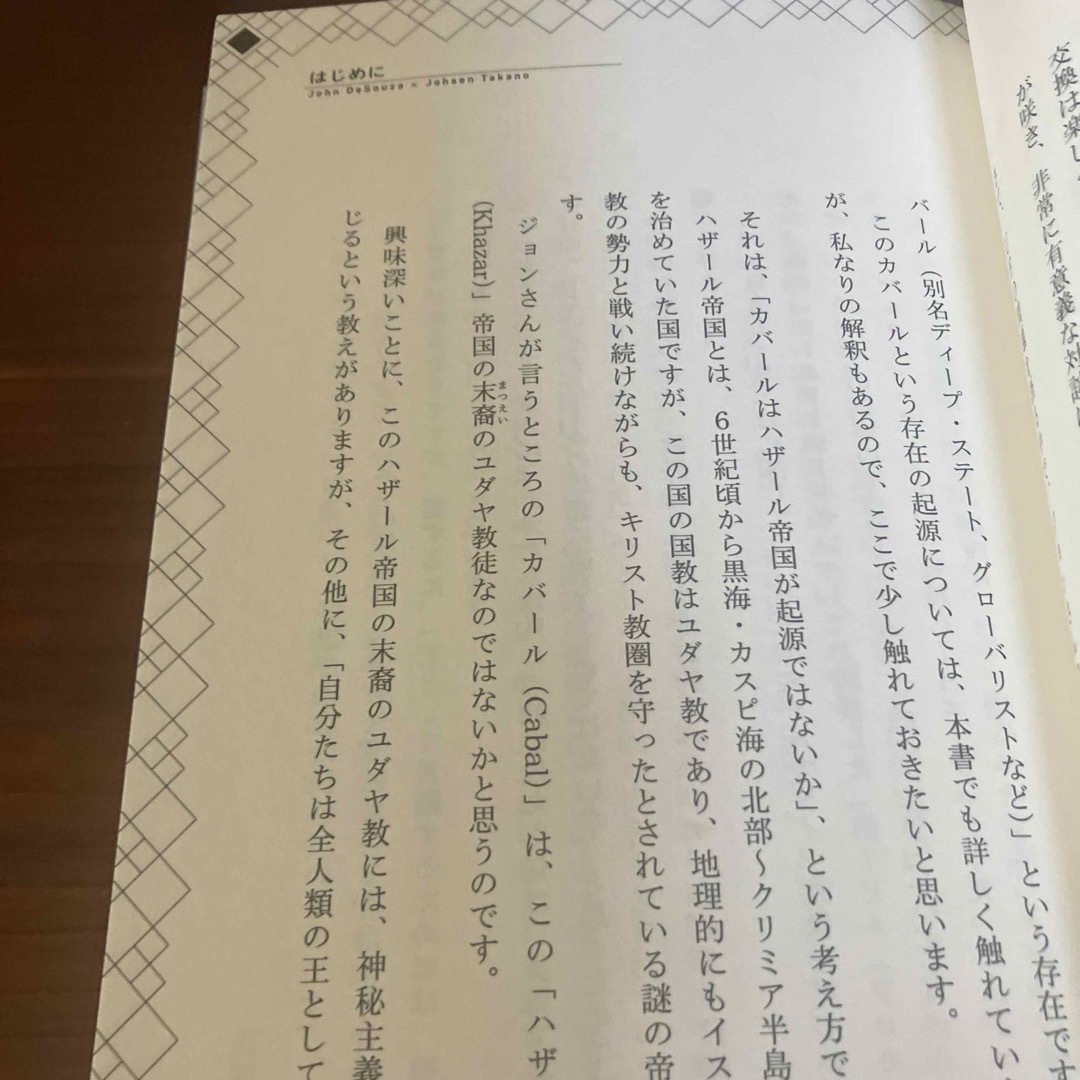 はじめに
John DeSouza × Johsen Takano
交換は楽し
が咲き、非常に有意義な対談
バール（別名ディープ・ステート、グローバリストなど）」という存在です
このカバールという存在の起源については、本書でも詳しく触れてい
が、私なりの解釈もあるので、ここで少し触れておきたいと思います。
それは、「カバールはハザール帝国が起源ではないか」、という考え方で
ハザール帝国とは、6世紀頃から黒海・カスピ海の北部～クリミア半島
を治めていた国ですが、この国の国教はユダヤ教であり、地理的にもイス
教の勢力と戦い続けながらも、キリスト教圏を守ったとされている謎の帝
す。
ジョンさんが言うところの「カバール（Cabal）」は、この「ハザ
（Khazar）」帝国の末裔のユダヤ教徒なのではないかと思うのです。
まつえい
興味深いことに、このハザール帝国の末裔のユダヤ教には、神秘主義
じるという教えがありますが、その他に、「自分たちは全人類の王として